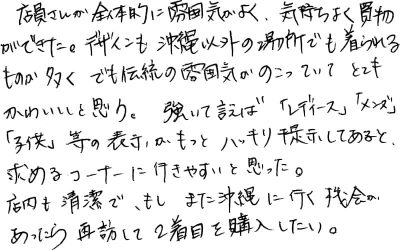 店員さんが全体的に雰囲気がよく、気持ちよく買物
ができた。デザインも沖縄以外の場所でも着られる
ものが多く でも伝統の雰囲気がのこっていて とても
かわいいと思う。 強いて言えば「レディース」「メンズ」
「子供」等の表示がもっとハッキリ提示してあると、
求めるコーナーに行きやすいと思った。
店内も清潔で、もし また沖縄に行く機会が
あったら 再訪して2着目を購入したい。